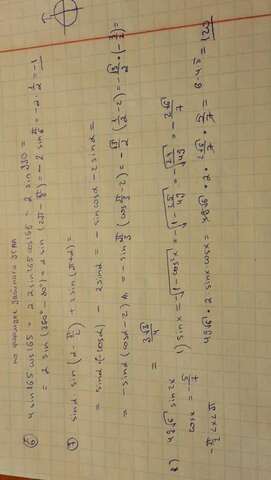 по формуле двойного угла
6) 4 sin165 cos165 = 2·2 sin165 cos165 = 2 sin330 =
= 2 sin(360°-30°) = 2 sin(2π - π/6) = -2 sin π/6 = -2·1/2 = -1
7) sinα sin(α - π/2) + 2 sin(π+α) =
= sinα·(-cosα) - 2sinα = -sinα cosα - 2 sinα =
= -sinα(cosα - 2) = -sin π/3 (cos π/3 - 2) = -√3/2 (1/2 - 2) = -√3/2 · (-3/2) =
= 3√3/4
8) 49√6 sin2x
cosx = -5/7
-π/2 < x < π
1) sinx = -√(1-cos²x) = -√(1 - 25/49) = -√(24/49) = -2√6/7
49√6 · 2 sinx cosx = 49√6 · 2 · 2√6/7 · 5/7 = 6·4·5 = 120